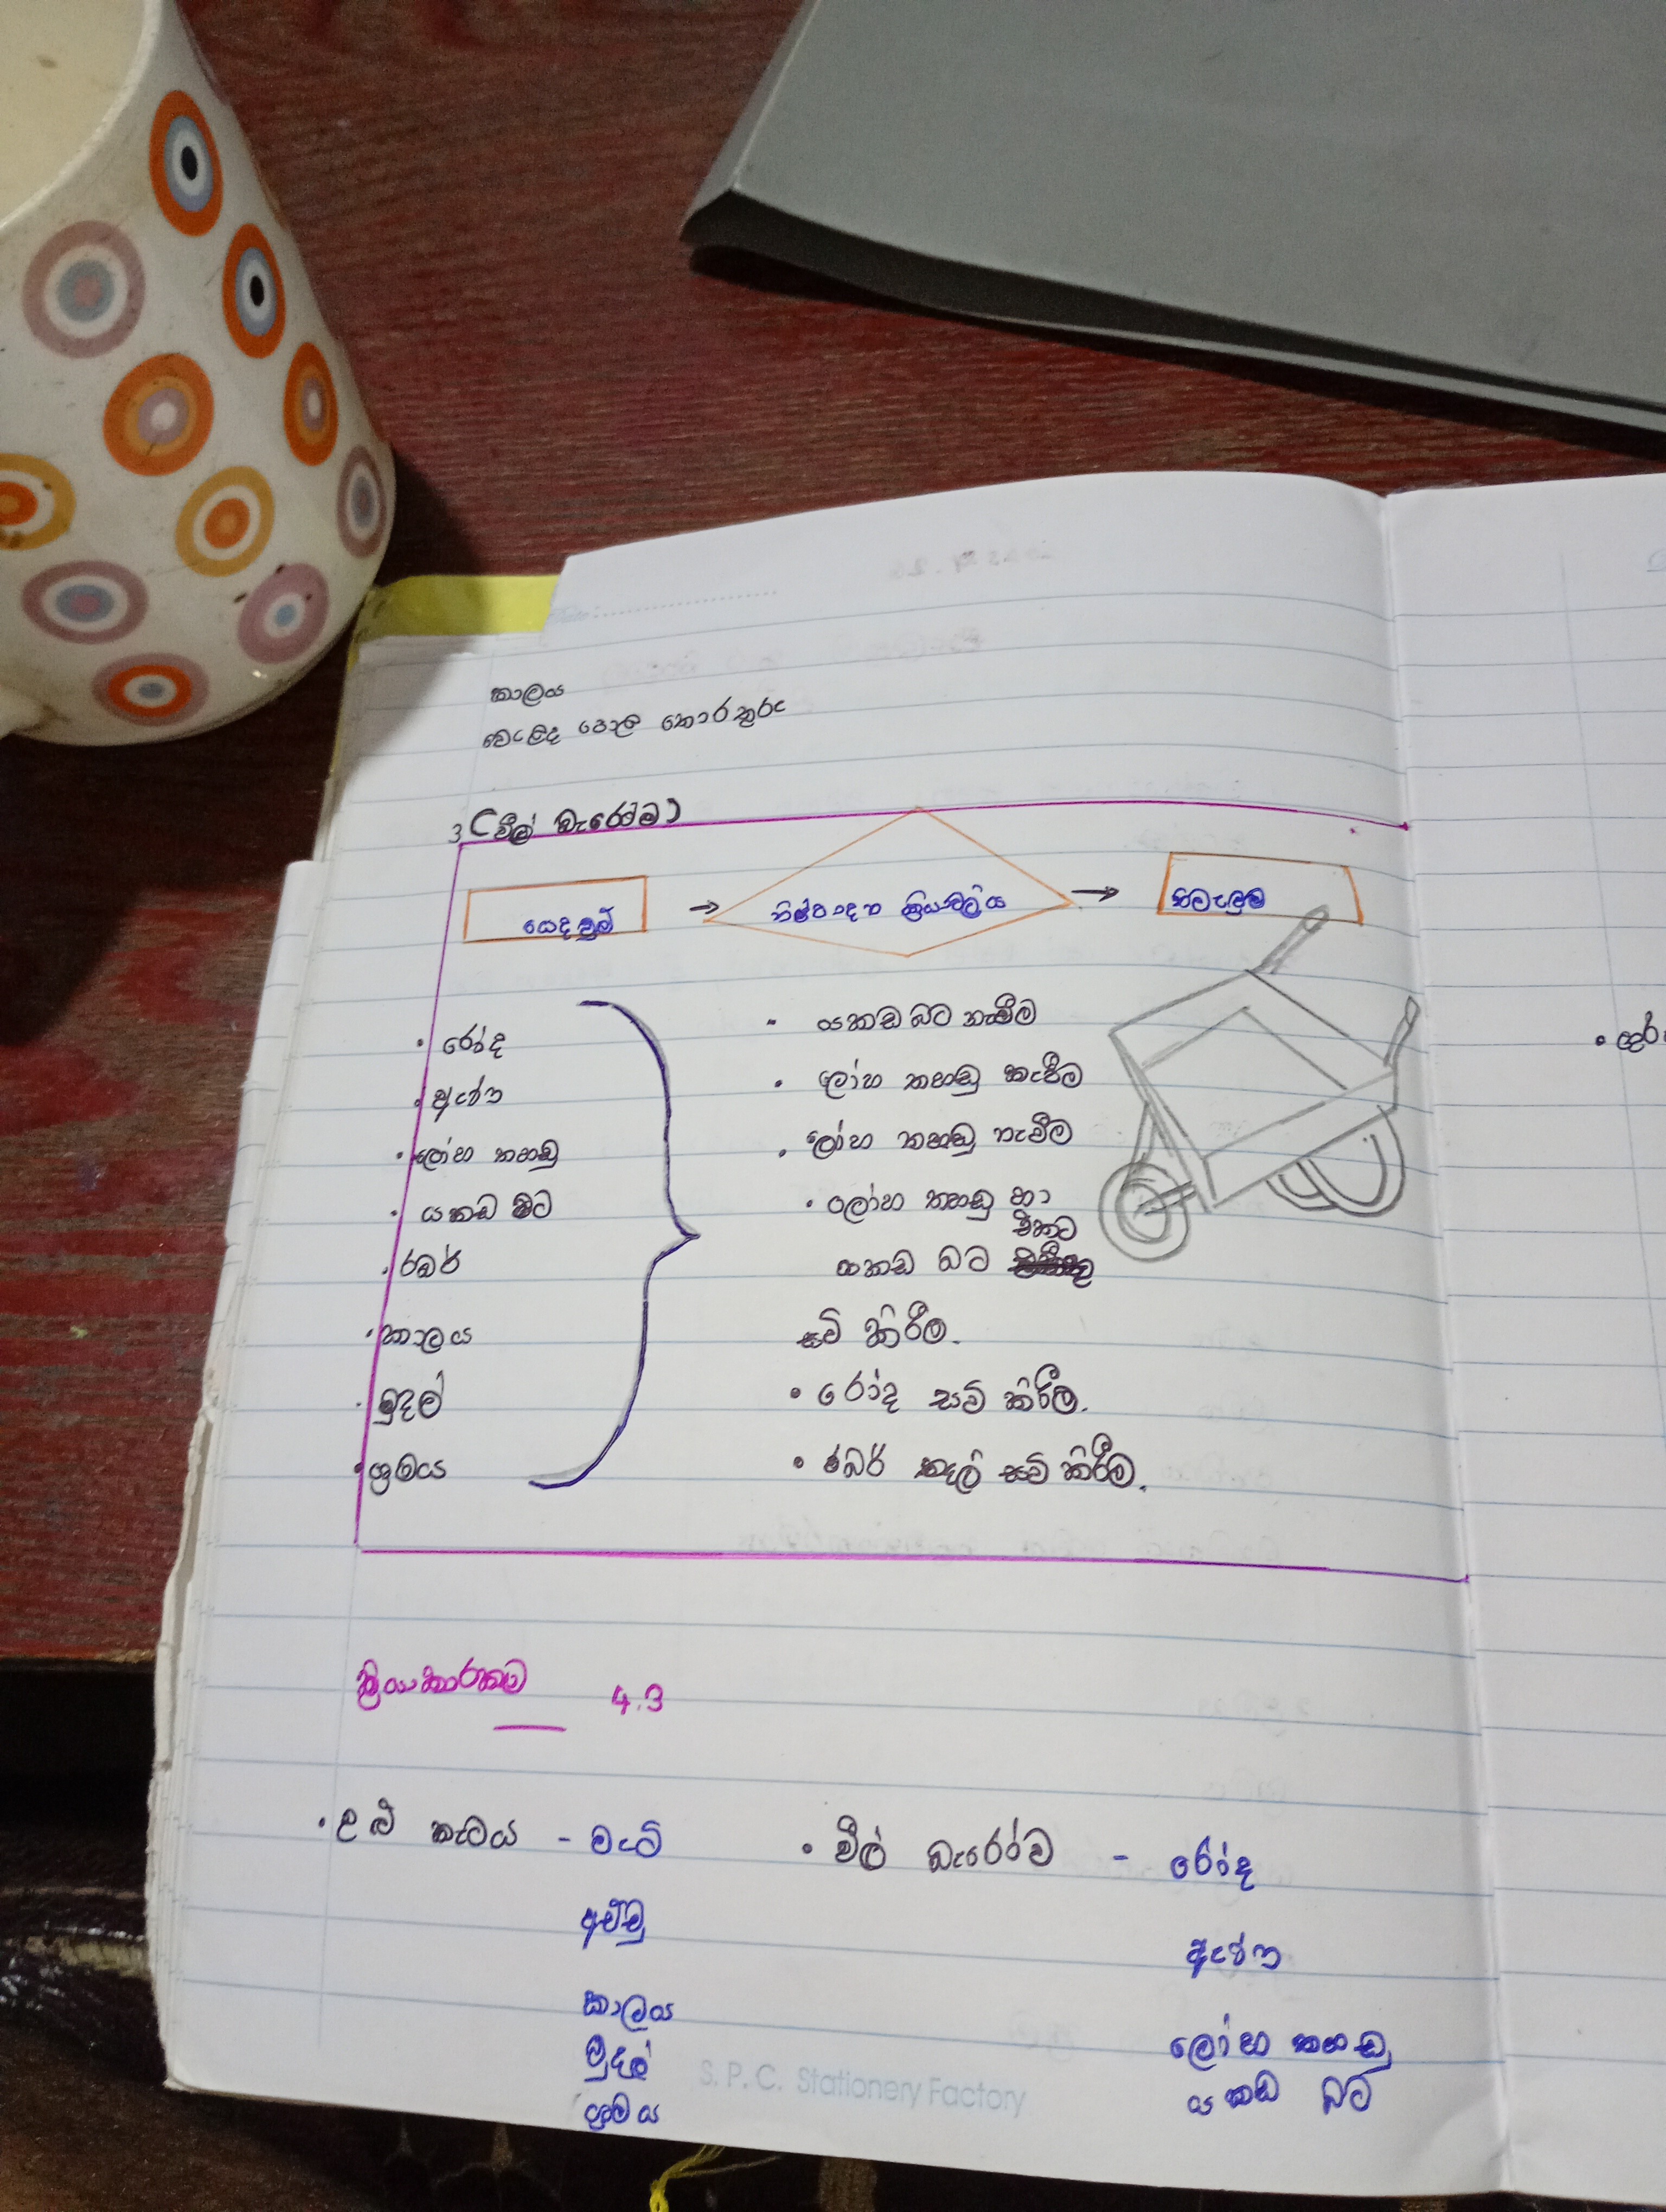 කාලය
වෙළඳ පොල තොරතුරු
3 (වීල් බැරෝම)
යෙදවුම් → නිෂ්පාදන ක්‍රියාවලිය → නිමැවුම
• රෝද
• ඇණ
• ලෝහ තහඩු
• යකඩ බට
• රබර්
• කාලය
• මුදල්
• ශ්‍රමය
• යකඩ බට නැවීම
• ලෝහ තහඩු කැපීම
• ලෝහ තහඩු නැවීම
• ලෝහ තහඩු හා
එකට
යකඩ බට
සවි කිරීම.
• රෝද සවි කිරීම.
• රබර් කදල් සවි කිරීම.
ක්‍රියාකාරකම 4.3
• උළු කැටය - මැටි
අච්චු
කාලය
මුදල්
ශ්‍රමය
• වීල් බැරෝව - රෝද
ඇණ
ලෝහ තහඩු
යකඩ බට
S. P. C. Stationery Factory